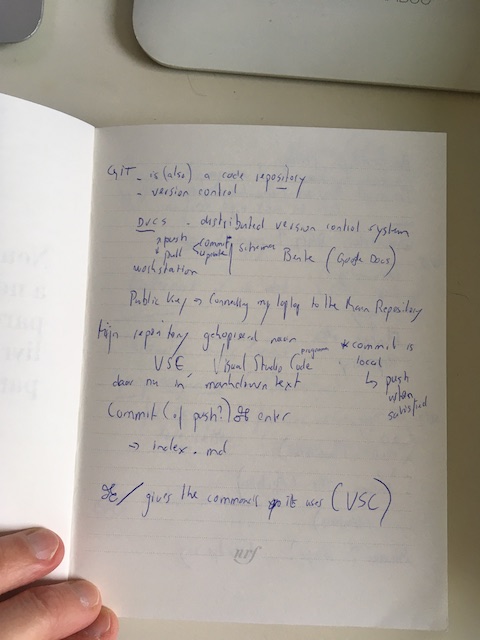 GIT - is (also) a code repository
- version control
DVCS - distributed version control system
push commit
pull update
Bente (Google Docs)
workstation
Public Key → Connecting my laptop to the Main Repository
mijn repository gekopieerd naar
VSE, Visual Studio Code program
* commit is local
↳ push when satisfied
daar nu in markdown text
Commit (of push?) ⌘ enter
→ index.md
⌘/ gives the commands it uses (VSC)